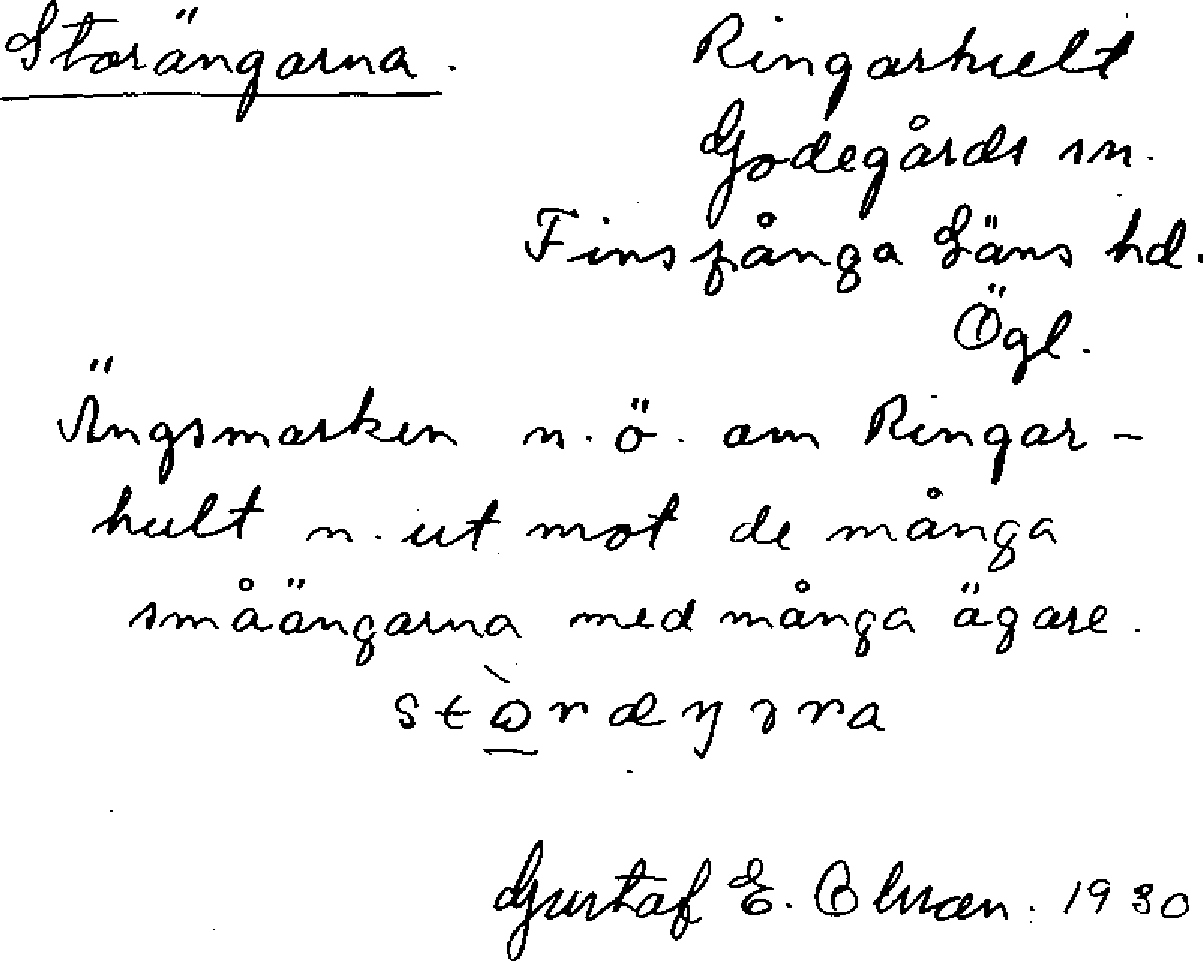 Storängarna.
Ringarhult
Godegårds sn.
Finspånga Läns hd.
Ögl.
Ängsmarken n.ö. om Ringar-
hult n. ut mot de många
småängarna med många ägare.
Gustaf E. Olsson. 1930